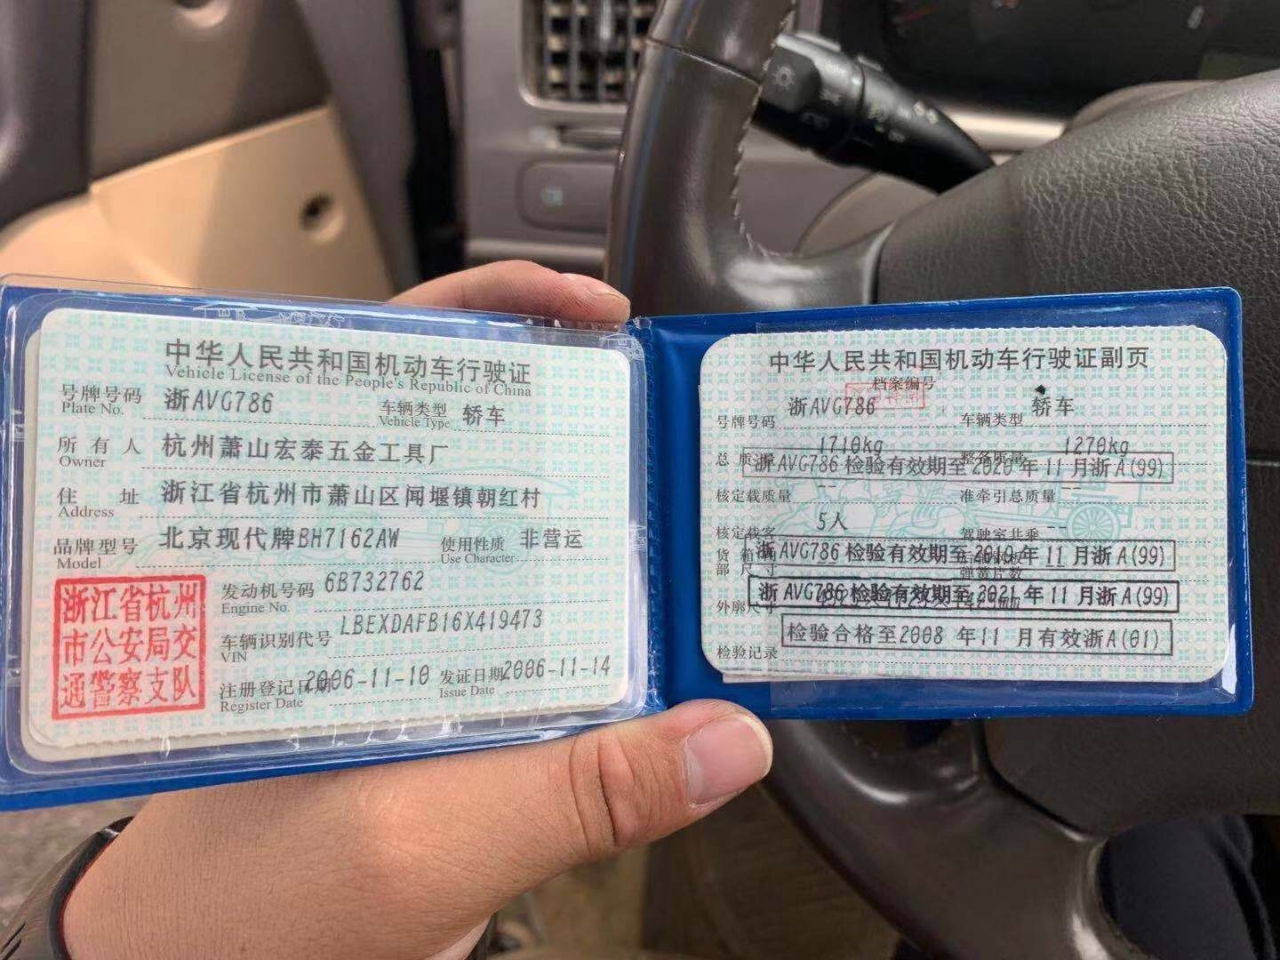 中华人民共和国机动车行驶证
Vehicle License of the People's Republic of China
号牌号码 浙AVG786 车辆类型 轿车
Plate No. Vehicle Type
所有人 杭州萧山宏泰五金工具厂
Owner
住址 浙江省杭州市萧山区闻堰镇朝红村
Address
品牌型号 北京现代牌BH7162AW 使用性质 非营运
Model Use Character
发动机号码 6B732762
Engine No.
车辆识别代号 LBEXDAFB16X419473
VIN
注册登记日期 2006-11-10 发证日期 2006-11-14
Register Date Issue Date
浙江省杭州
市公安局交
通警察支队
中华人民共和国机动车行驶证副页
档案编号
号牌号码 浙AVG786 车辆类型 轿车
总质量 1710kg 整备质量 1270kg
浙AVG786 检验有效期至2020年11月浙A(99)
核定载质量 -- 准牵引总质量 --
核定载客 5人 驾驶室共乘 --
浙AVG786 检验有效期至2019年11月浙A(99)
货箱部尺寸 弹簧片数
浙AVG786 检验有效期至2021年11月浙A(99)
外廓尺寸
检验记录 检验合格至2008年11月有效浙A(01)